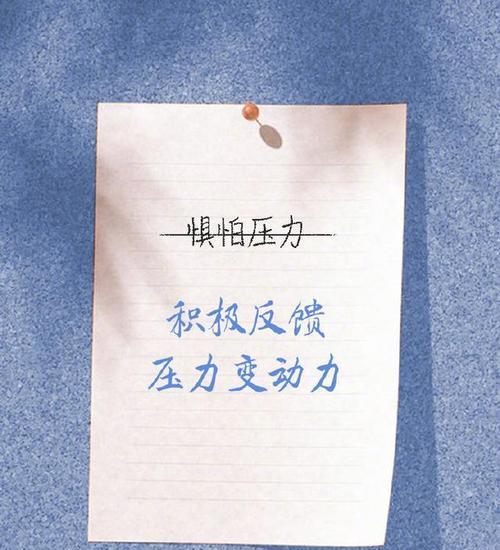 惧怕压力
积极反馈
压力变动力